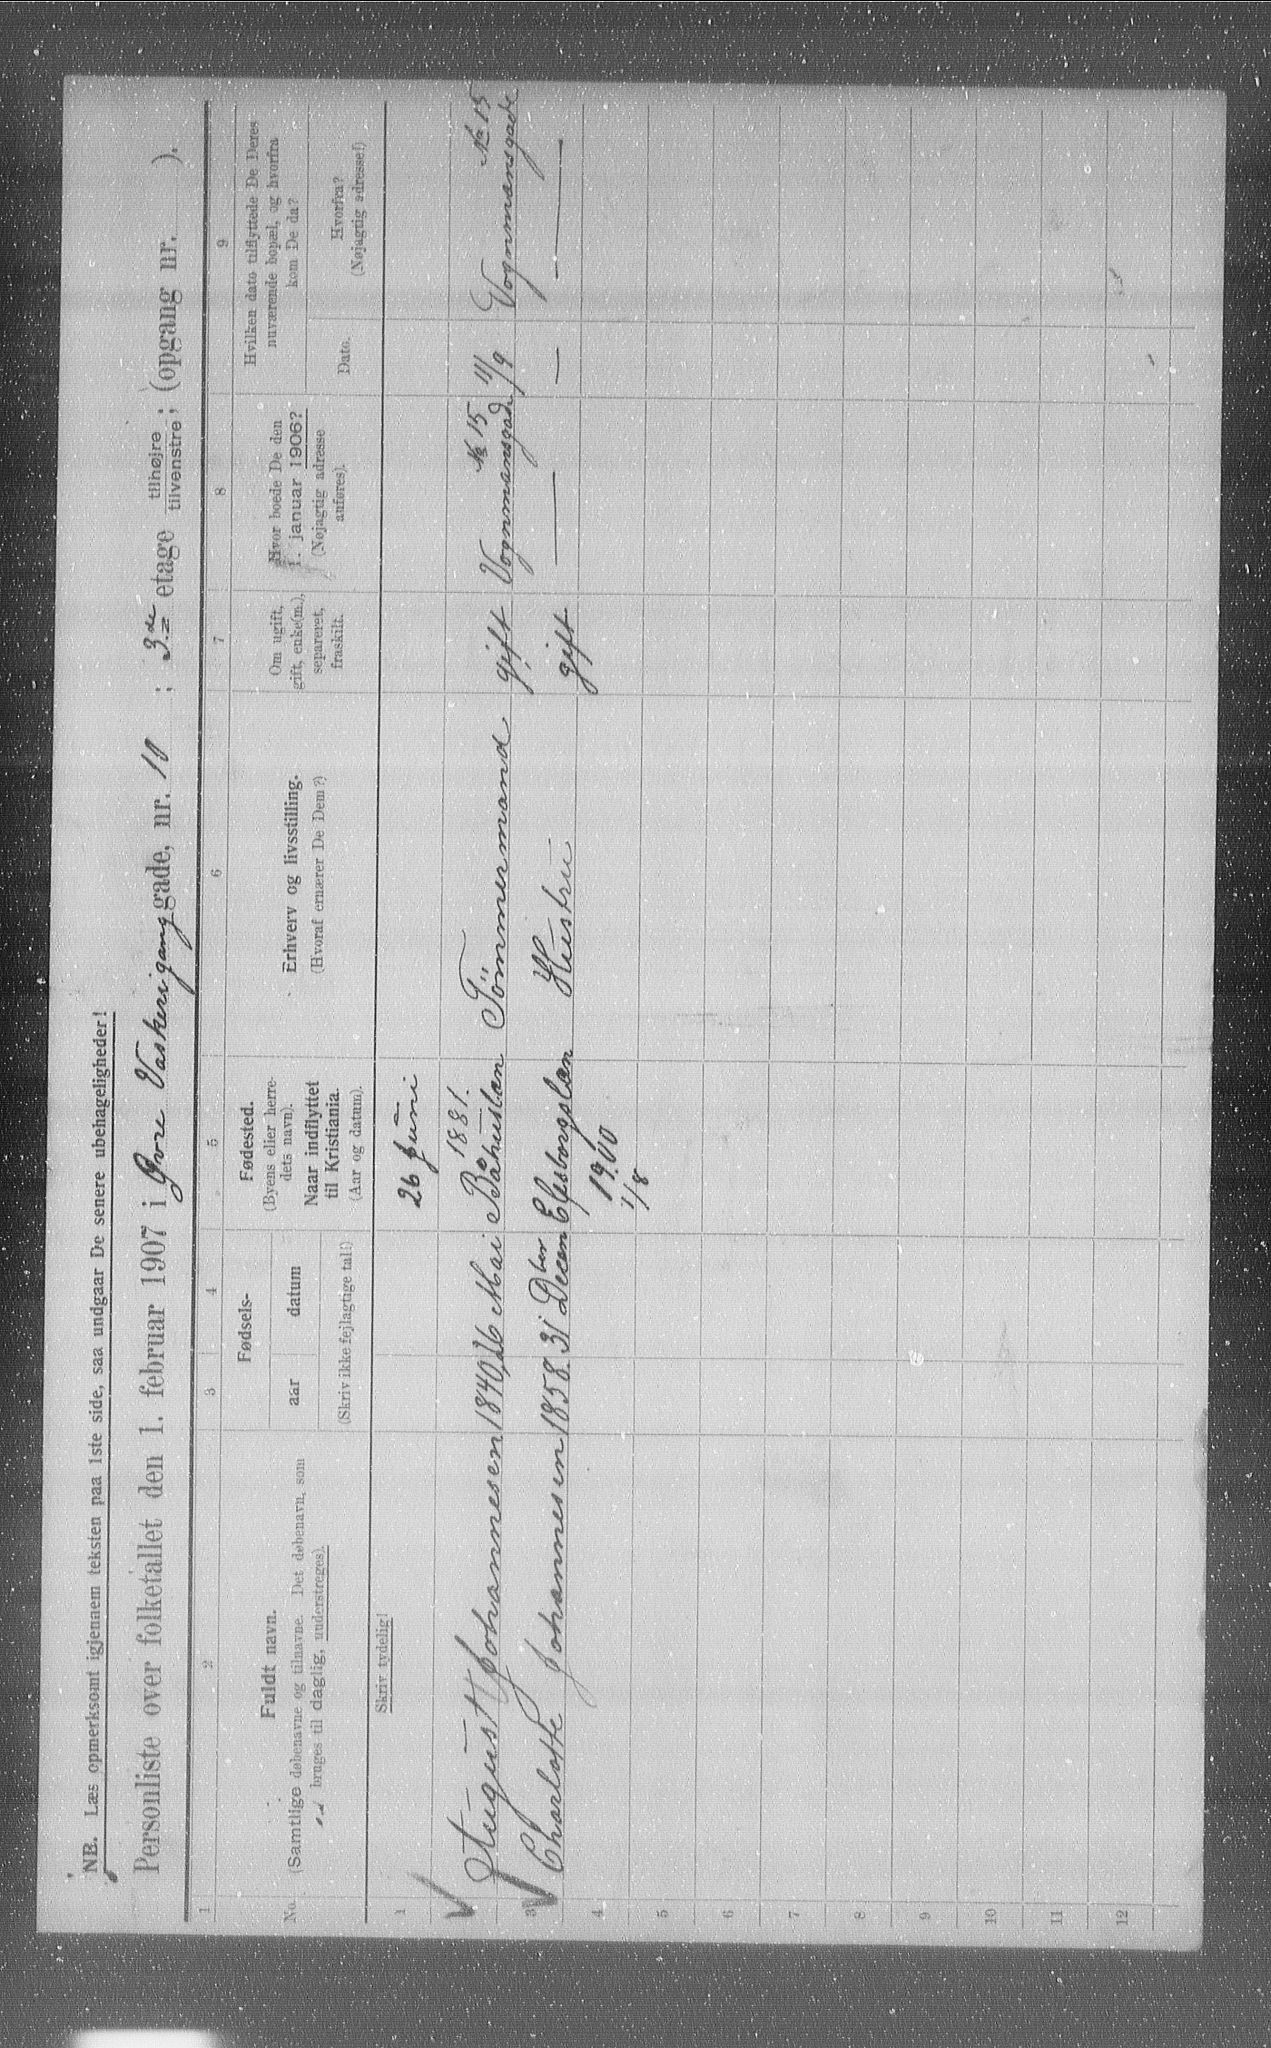 NB. Læs opmerksomt igjennem teksten paa 1ste side, saa undgaar De senere ubehageligheder!
Personliste over folketallet den 1. februar 1907 i Øvre Vaskerigang gade, nr. 10 ; 3de etage tilhøjre tilvenstre; (opgang nr. ).
1 2 3 4 5 6 7 8 9
No.
Fuldt navn.
(Samtlige døbenavne og tilnavne. Det døbenavn, som
bruges til daglig, understreges).
Fødsels-
aar datum
(Skriv ikke fejlagtige tal!)
Fødested.
(Byens eller herre-
dets navn).
Naar indflyttet
til Kristiania.
(Aar og datum).
Erhverv og livsstilling.
(Hvoraf ernærer De Dem?)
Om ugift,
gift, enke(m.),
separeret,
fraskilt.
Hvor boede De den
1. januar 1906?
(Nøjagtig adresse
anføres).
Hvilken dato tilflyttede De Deres
nuværende bopæl, og hvorfra
kom De da?
Dato.
Hvorfra?
(Nøjagtig adresse!)
Skriv tydelig!
1 26 Juni
1881. № 15 № 15
August Johannesen 1840 26 Mai Båhuslæn Tömmermand gift Vognmansgade 11/9 Vognmansgade
3 Charlotte Johannesen 1858 31 Decem ber Elfsborgslæn Hustru gift — — —
4 1900
1/8
5
6
7
8
9
10
11
12